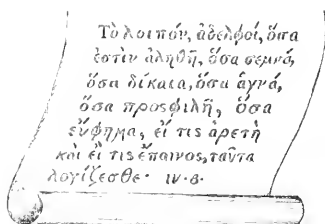 Τὸ λοιπόν, ἀδελφοί, ὅσα
ἐστὶν ἀληθῆ, ὅσα σεμνά,
ὅσα δίκαια, ὅσα ἁγνά,
ὅσα προςφιλῆ, ὅσα
εὔφημα, εἴ τις ἀρετὴ
καὶ εἴ τις ἔπαινος, ταῦτα
λογίζεσθε· IV·8·